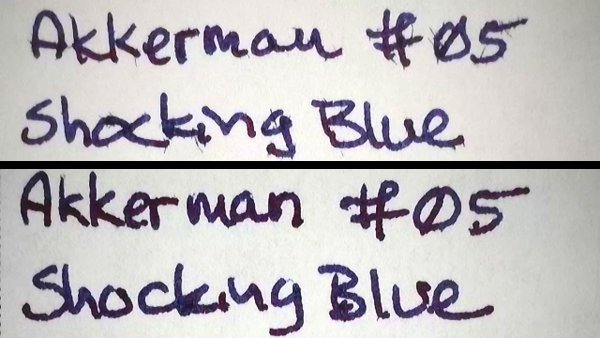 Akkerman #05
Shocking Blue
Akkerman #05
Shocking Blue